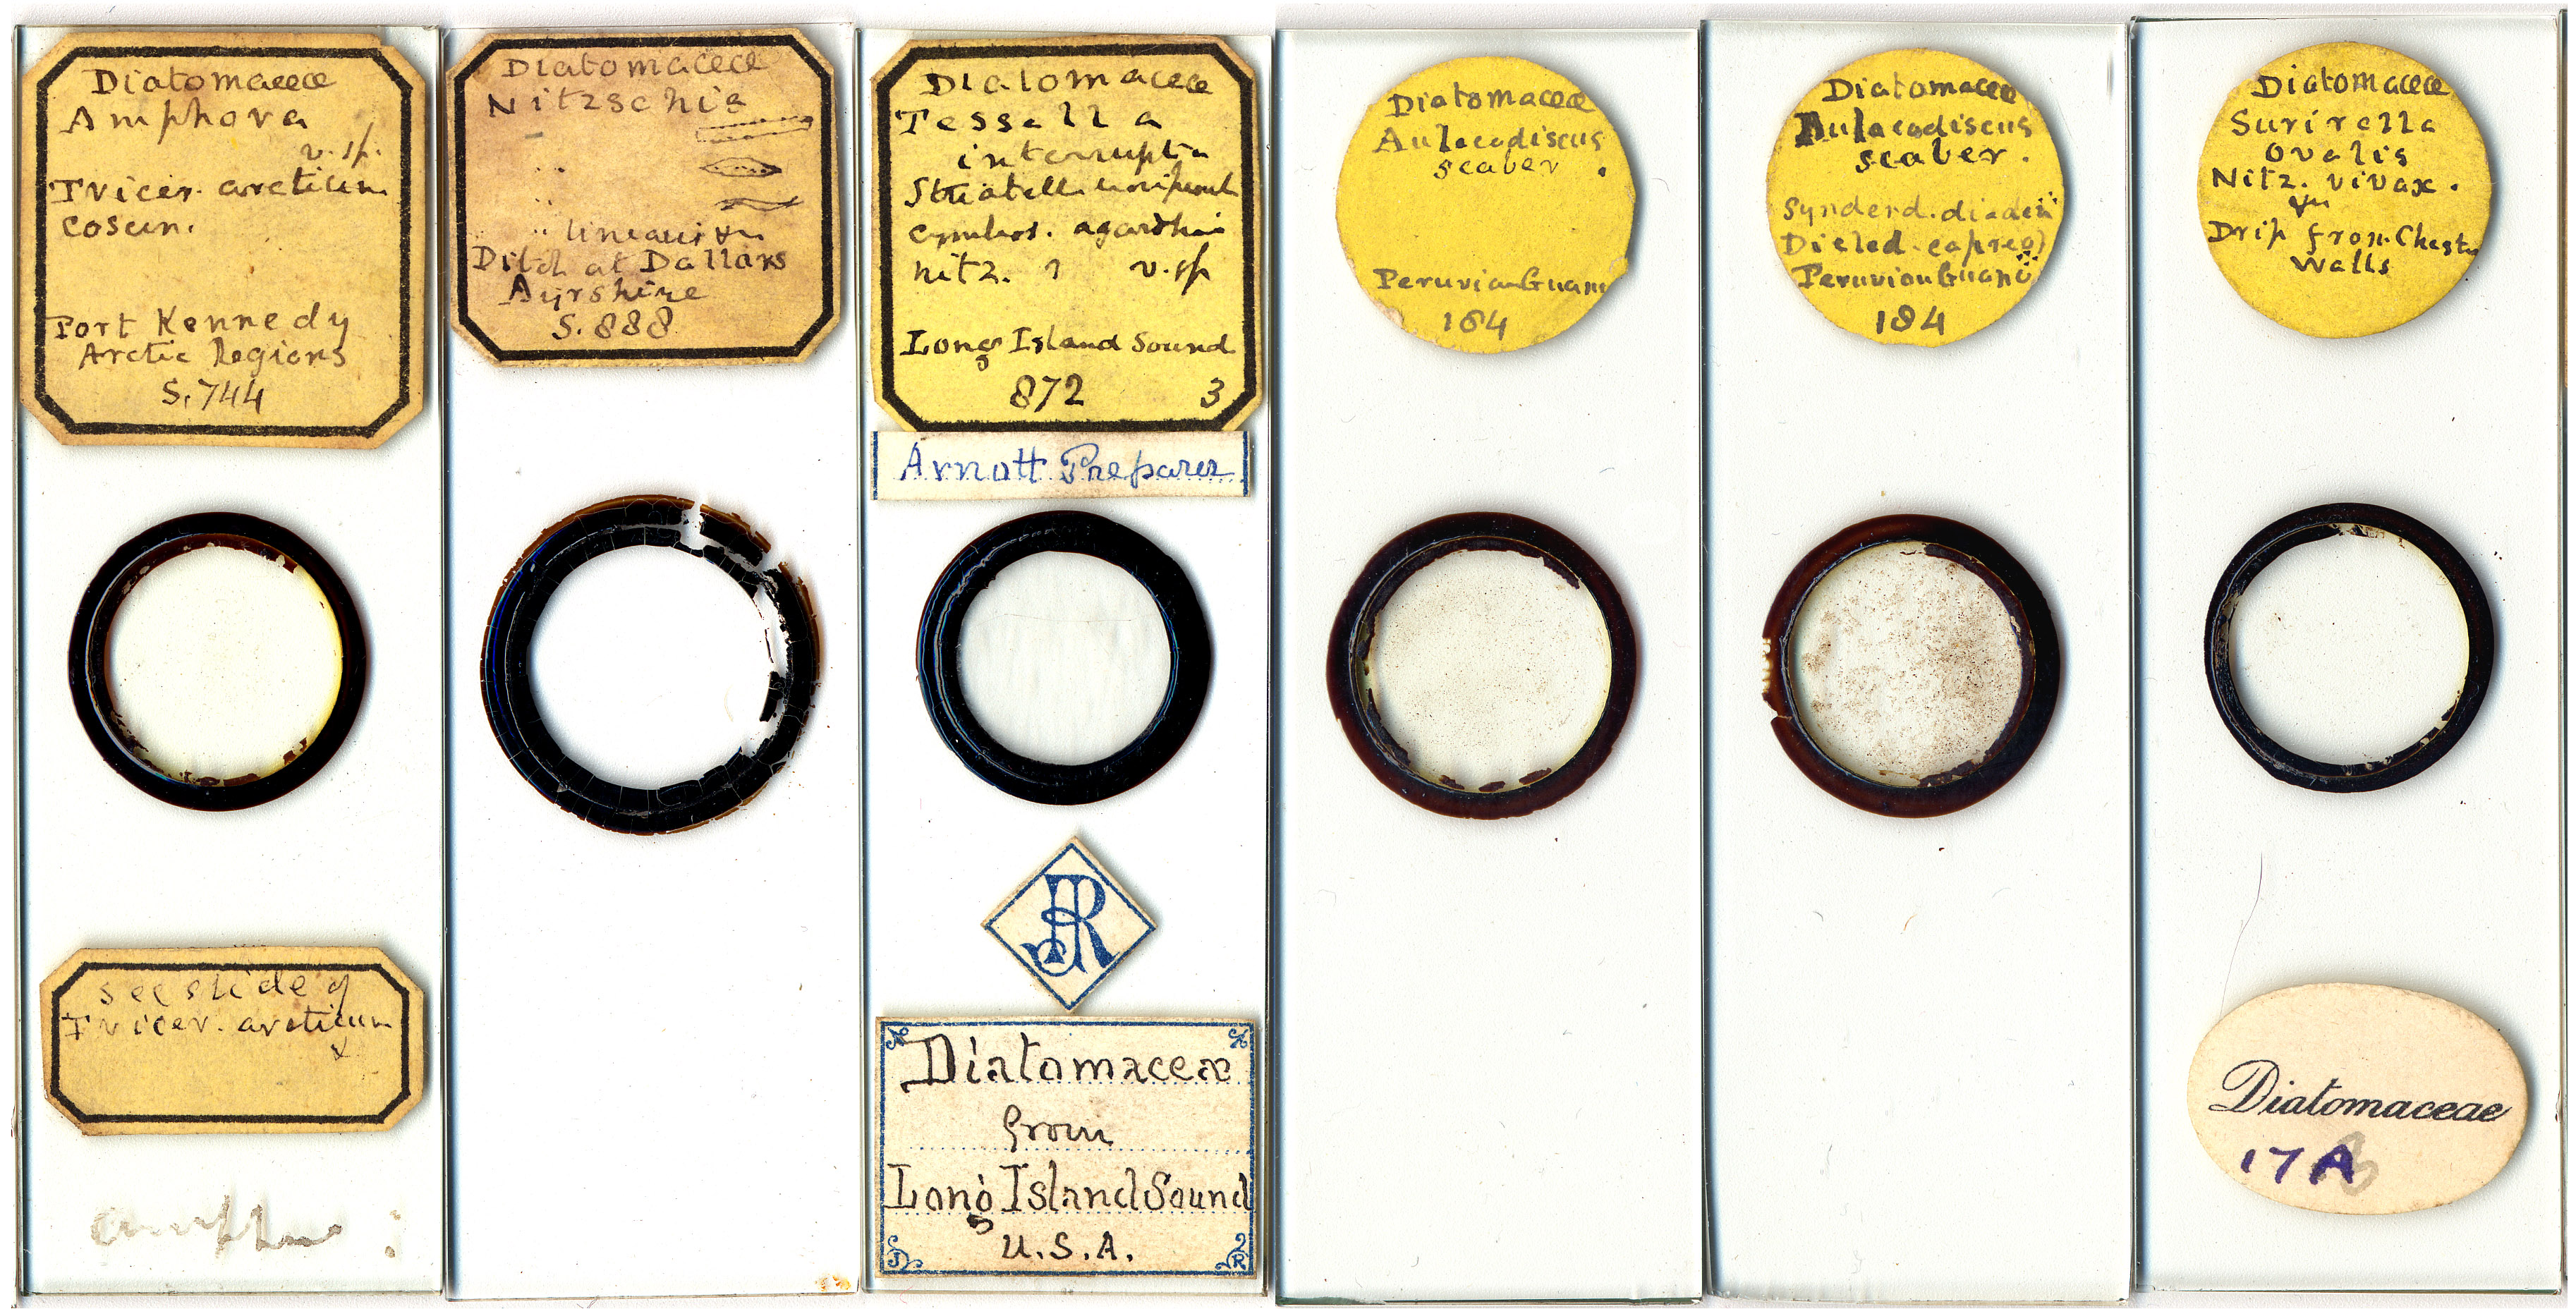 Diatomaceæ
Amphora
v. sp.
Tricer. arcticum
coscin.
Port Kennedy
Arctic Regions
S. 744
see slide of
Tricer. arcticum
x
Diatomaceæ
Nitzschia
"
"
" linearis &c
Ditch at Dallars
Ayrshire
S. 888
Diatomaceæ
Tessella
interrupta
Striatella unipunct
cymbos. agardhii
nitz. ? v. sp
Long Island Sound
872 3
Arnott Preparer
JR
Diatomaceæ
from
Long Island Sound
U.S.A.
J R
Diatomaceæ
Aulacodiscus
scaber.
Peruvian Guano
184
Diatomaceæ
Aulacodiscus
scaber.
Synderd. diadem
Dicled. capreo
Peruvian Guano
184
Diatomaceæ
Surirella
Ovalis
Nitz. vivax.
&c
Drip from Chester
Walls
Diatomaceae
17A